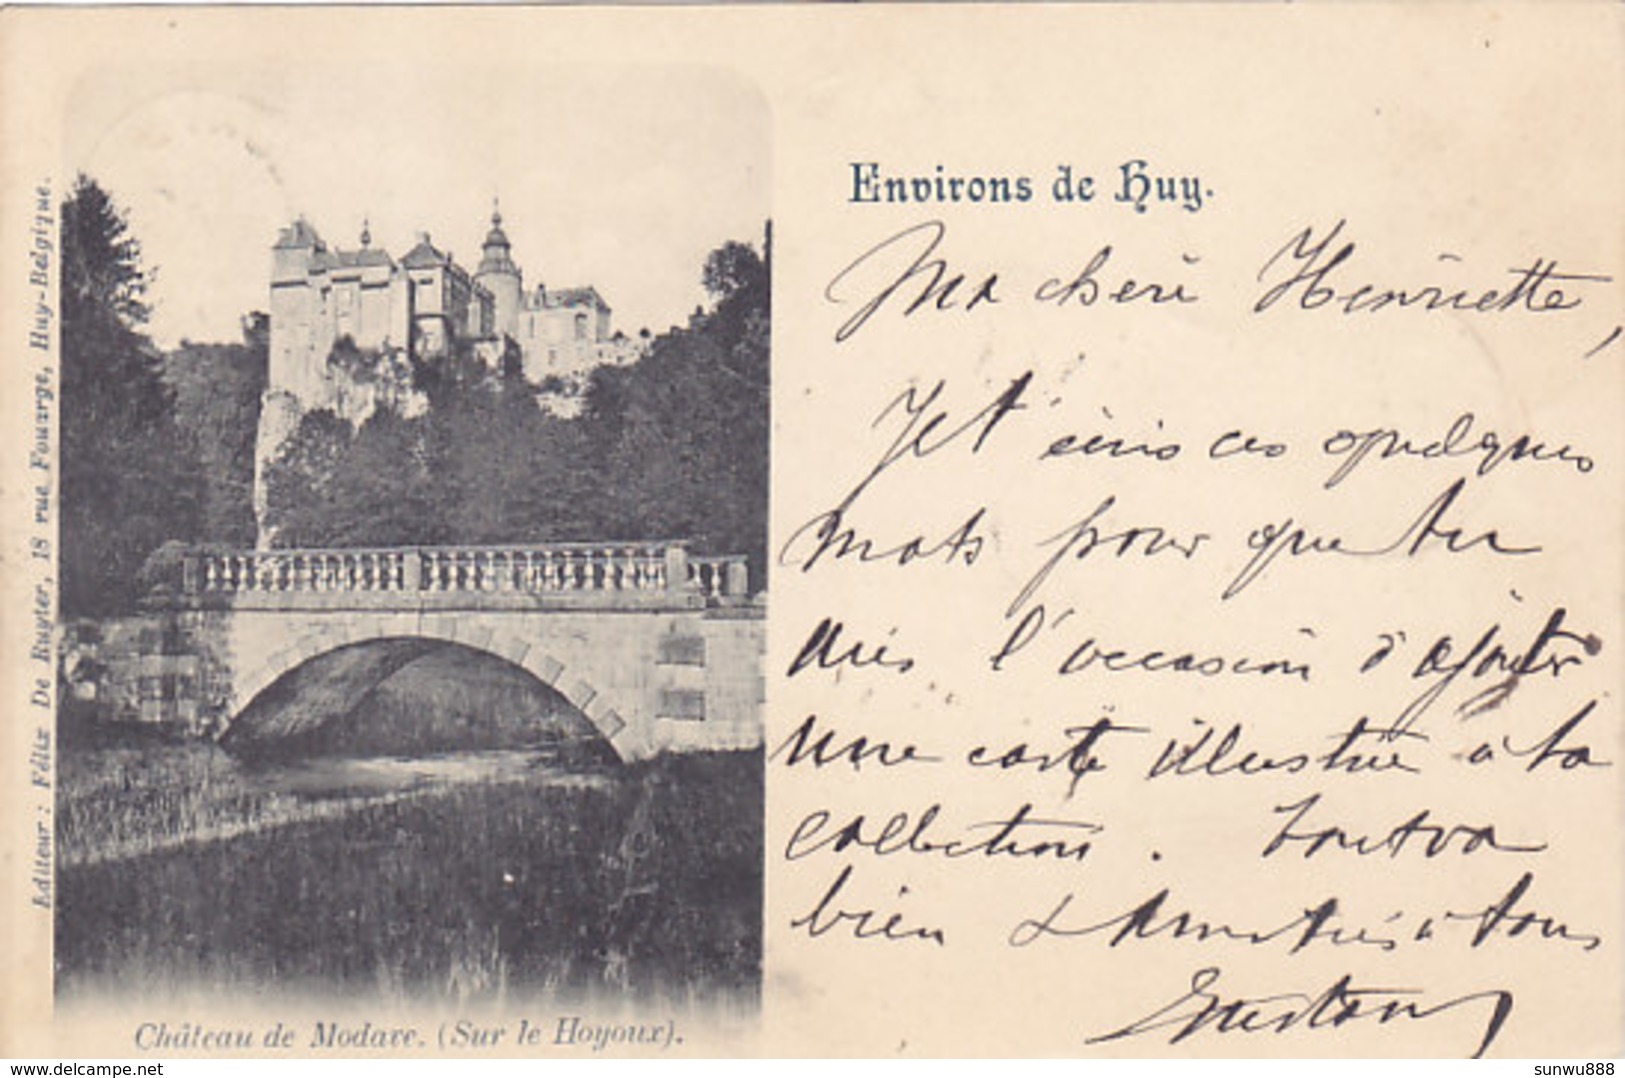 Environs de Huy.
Ma chère Henriette,
Je t'écris ces quelques
mots pour que tu
aies l'occasion d'ajouter
une carte illustrée à ta
collection. Tout va
bien & à tous
Editeur: Félix De Ruyter, 18 rue Fouarge, Huy-Belgique.
Château de Modave. (Sur le Hoyoux).
www.delcampe.net
sunwu888